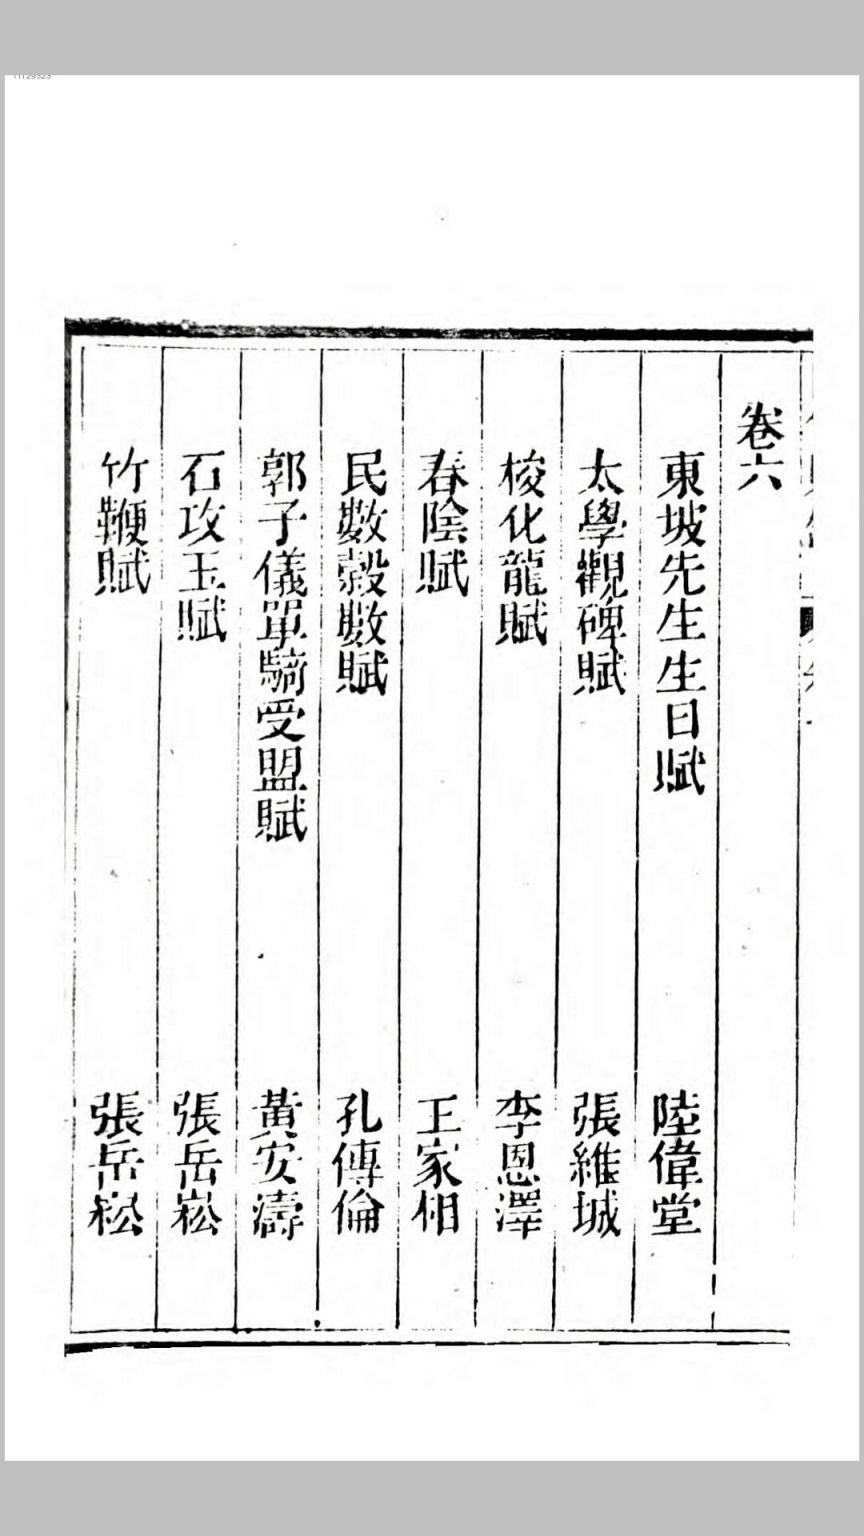 卷六
東坡先生生日賦 陸偉堂
太學觀碑賦 張維城
梭化龍賦 李恩澤
春陰賦 王家相
民數榖數賦 孔傳倫
郭子儀單騎受盟賦 黃安濤
石攻玉賦 張岳崧
竹鞭賦 張岳崧